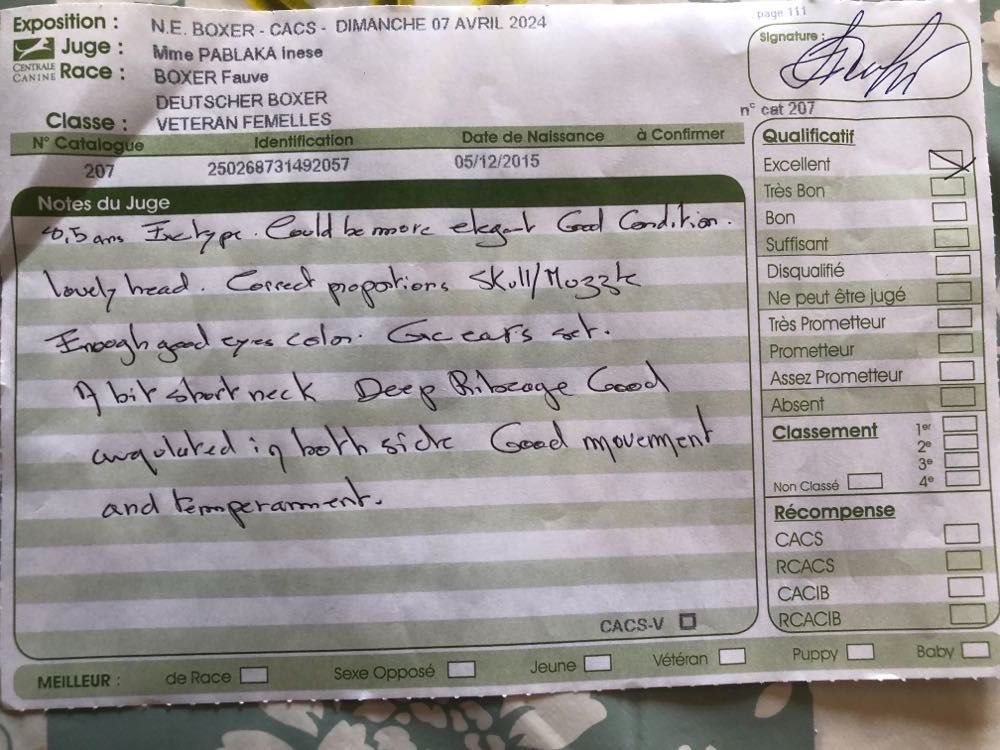 page 111
Exposition : N.E. BOXER - CACS - DIMANCHE 07 AVRIL 2024
Juge : Mme PABLAKA Inese
CENTRALE CANINE
Race : BOXER Fauve
DEUTSCHER BOXER
Classe : VETERAN FEMELLES
Signature :
n° cat 207
N° Catalogue Identification Date de Naissance à Confirmer
207 250268731492057 05/12/2015
Notes du Juge
ans type. Could be more elegant Good Condition.
lovely head. Correct proportions Skull/Muzzle
Enough good eyes color. ears set.
A bit short neck Deep Ribcage Good
angulated in both side Good movement
and temperamment.
CACS-V
Qualificatif
Excellent
Très Bon
Bon
Suffisant
Disqualifié
Ne peut être jugé
Très Prometteur
Prometteur
Assez Prometteur
Absent
Classement 1er
2e
3e
Non Classé 4e
Récompense
CACS
RCACS
CACIB
RCACIB
MEILLEUR : de Race Sexe Opposé Jeune Vétéran Puppy Baby